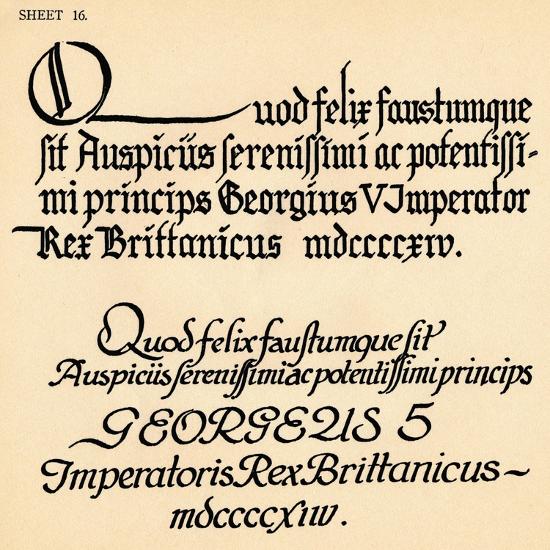 SHEET 16.
Quod felix faustumque
sit Auspiciis serenissimi ac potentissi-
mi princips Georgius V Imperator
Rex Brittanicus mdccccxiv.
Quod felix faustumque sit
Auspiciis serenissimi ac potentissimi princips
GEORGEUS 5
Imperatoris Rex Brittanicus~
mdccccxiiv.